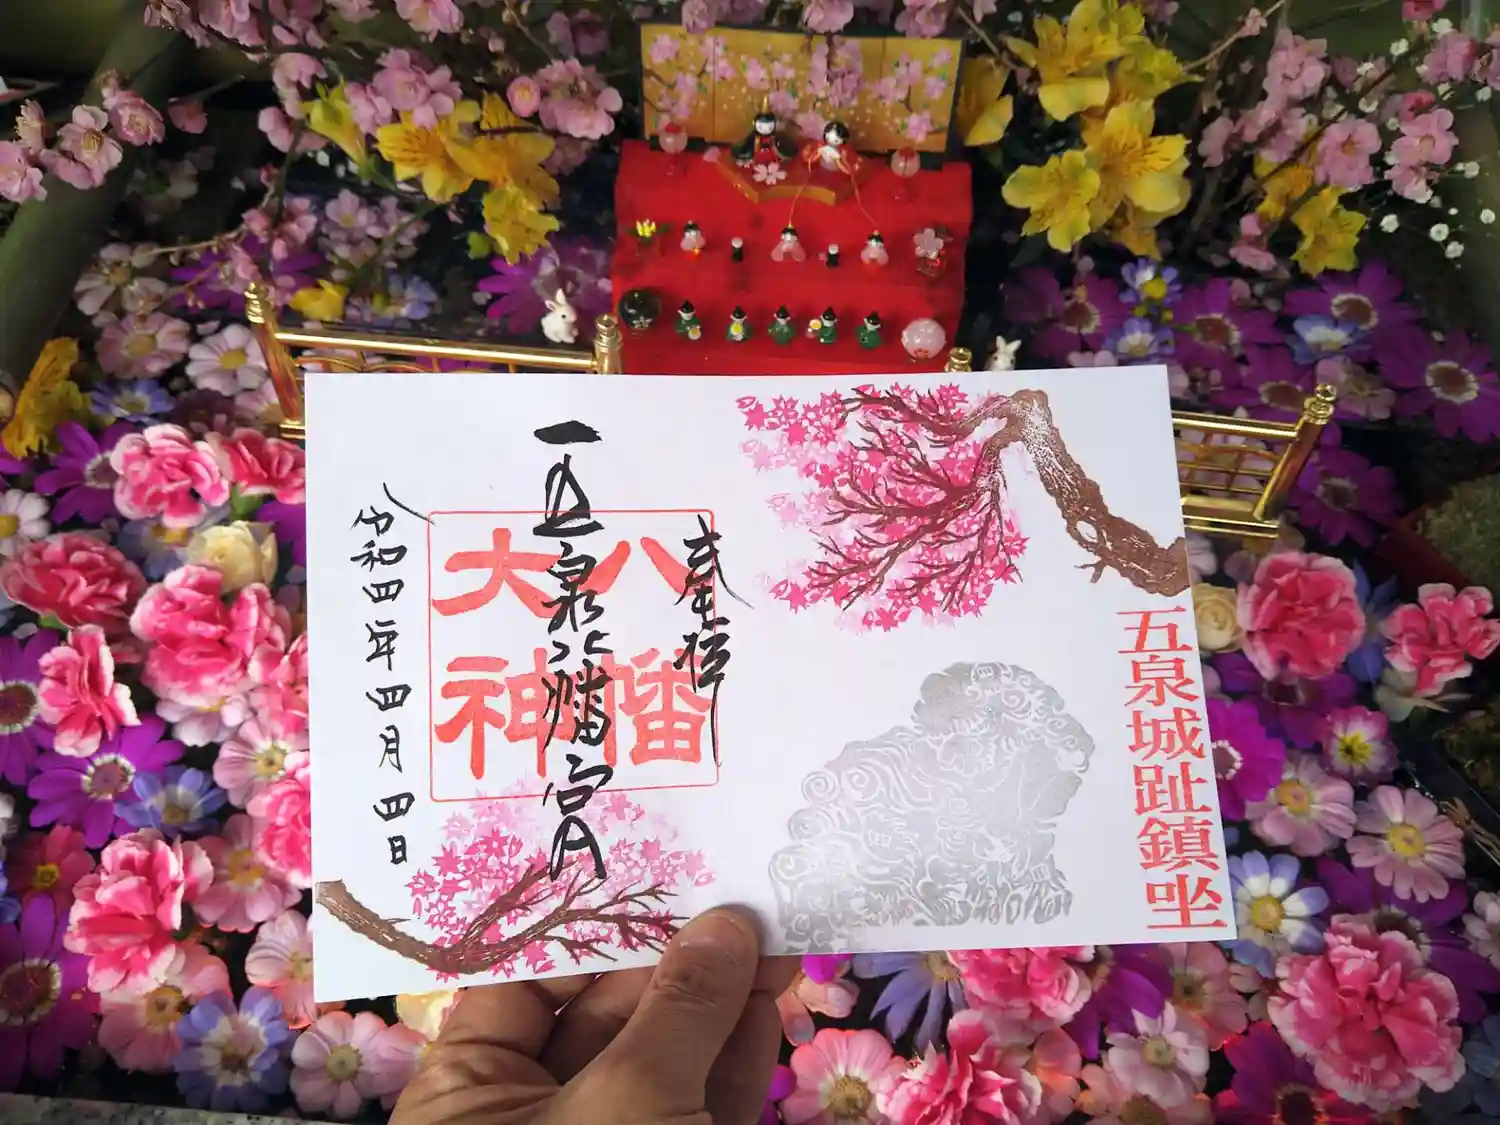 五泉城趾鎮坐
奉拝
八幡
大神
五泉八幡宮
令和四年四月四日